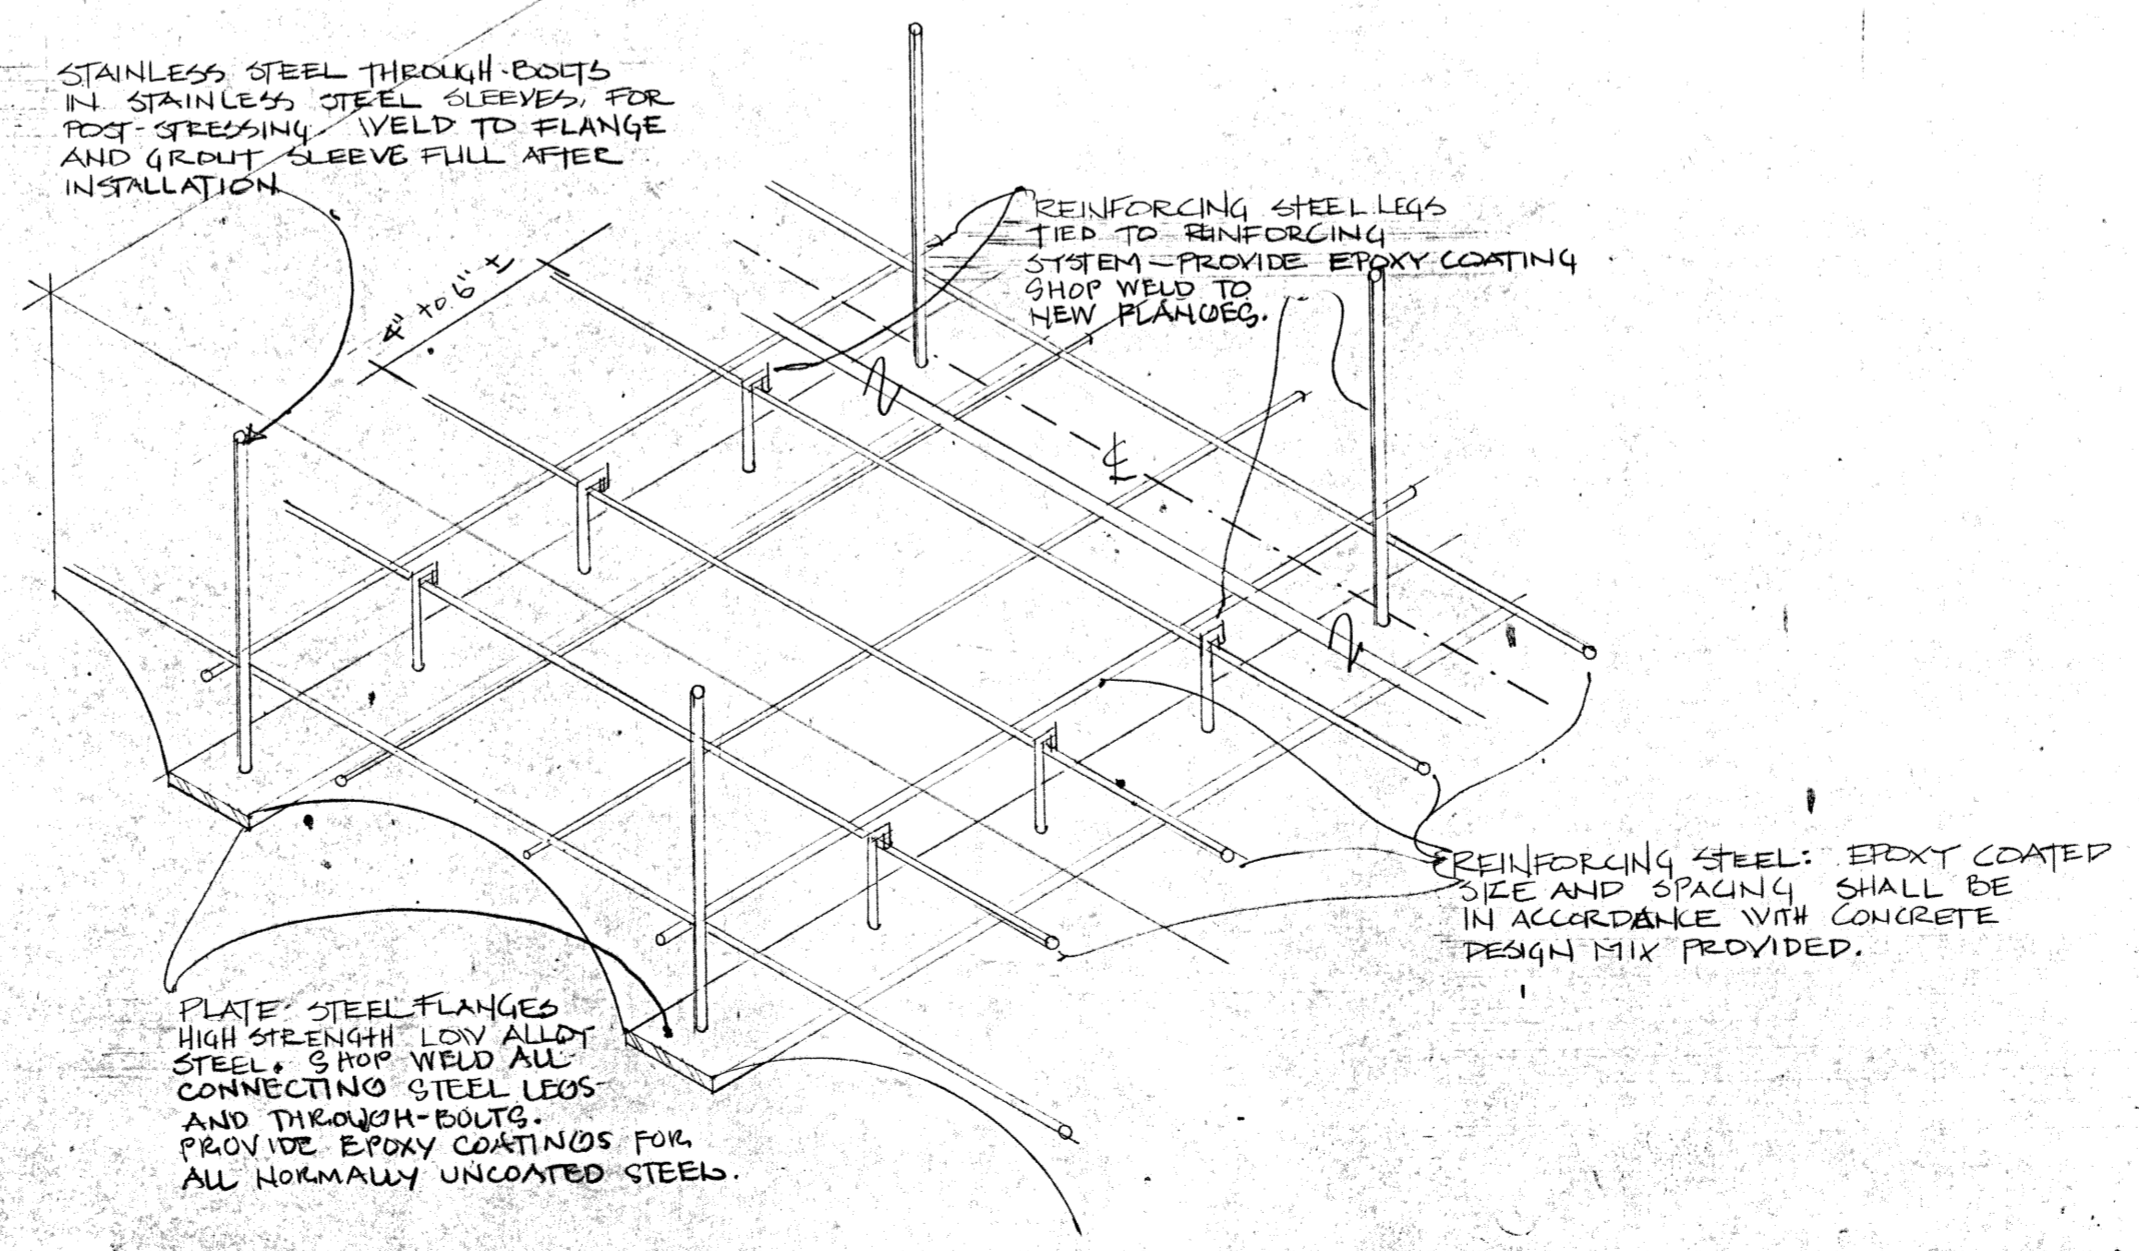 STAINLESS STEEL THROUGH-BOLTS
IN STAINLESS STEEL SLEEVES, FOR
POST-STRESSING. WELD TO FLANGE
AND GROUT SLEEVE FULL AFTER
INSTALLATION
4" to 6" ±
REINFORCING STEEL LEGS
TIED TO REINFORCING
SYSTEM - PROVIDE EPOXY COATING
SHOP WELD TO
NEW FLANGES.
℄
REINFORCING STEEL: EPOXY COATED
SIZE AND SPACING SHALL BE
IN ACCORDANCE WITH CONCRETE
DESIGN MIX PROVIDED.
PLATE STEEL FLANGES
HIGH STRENGTH LOW ALLOY
STEEL. SHOP WELD ALL
CONNECTING STEEL LEGS
AND THROUGH-BOLTS.
PROVIDE EPOXY COATINGS FOR
ALL NORMALLY UNCOATED STEEL.